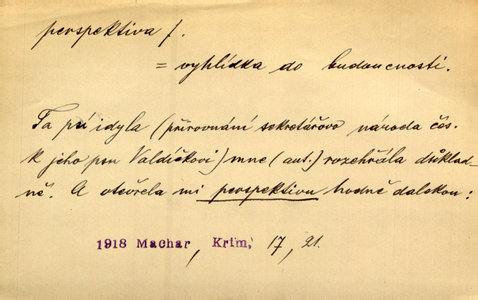 perspektiva f.
= vyhlídka do budoucnosti.
Ta psí idyla (přirovnání sekretářovo národa čes.
k jeho psu Valdíčkovi) mne (aut.) rozehřála důklad-
ně. A otevřela mi perspektivu hodně dalekou:
1918 Machar, Krim, 17, 21.